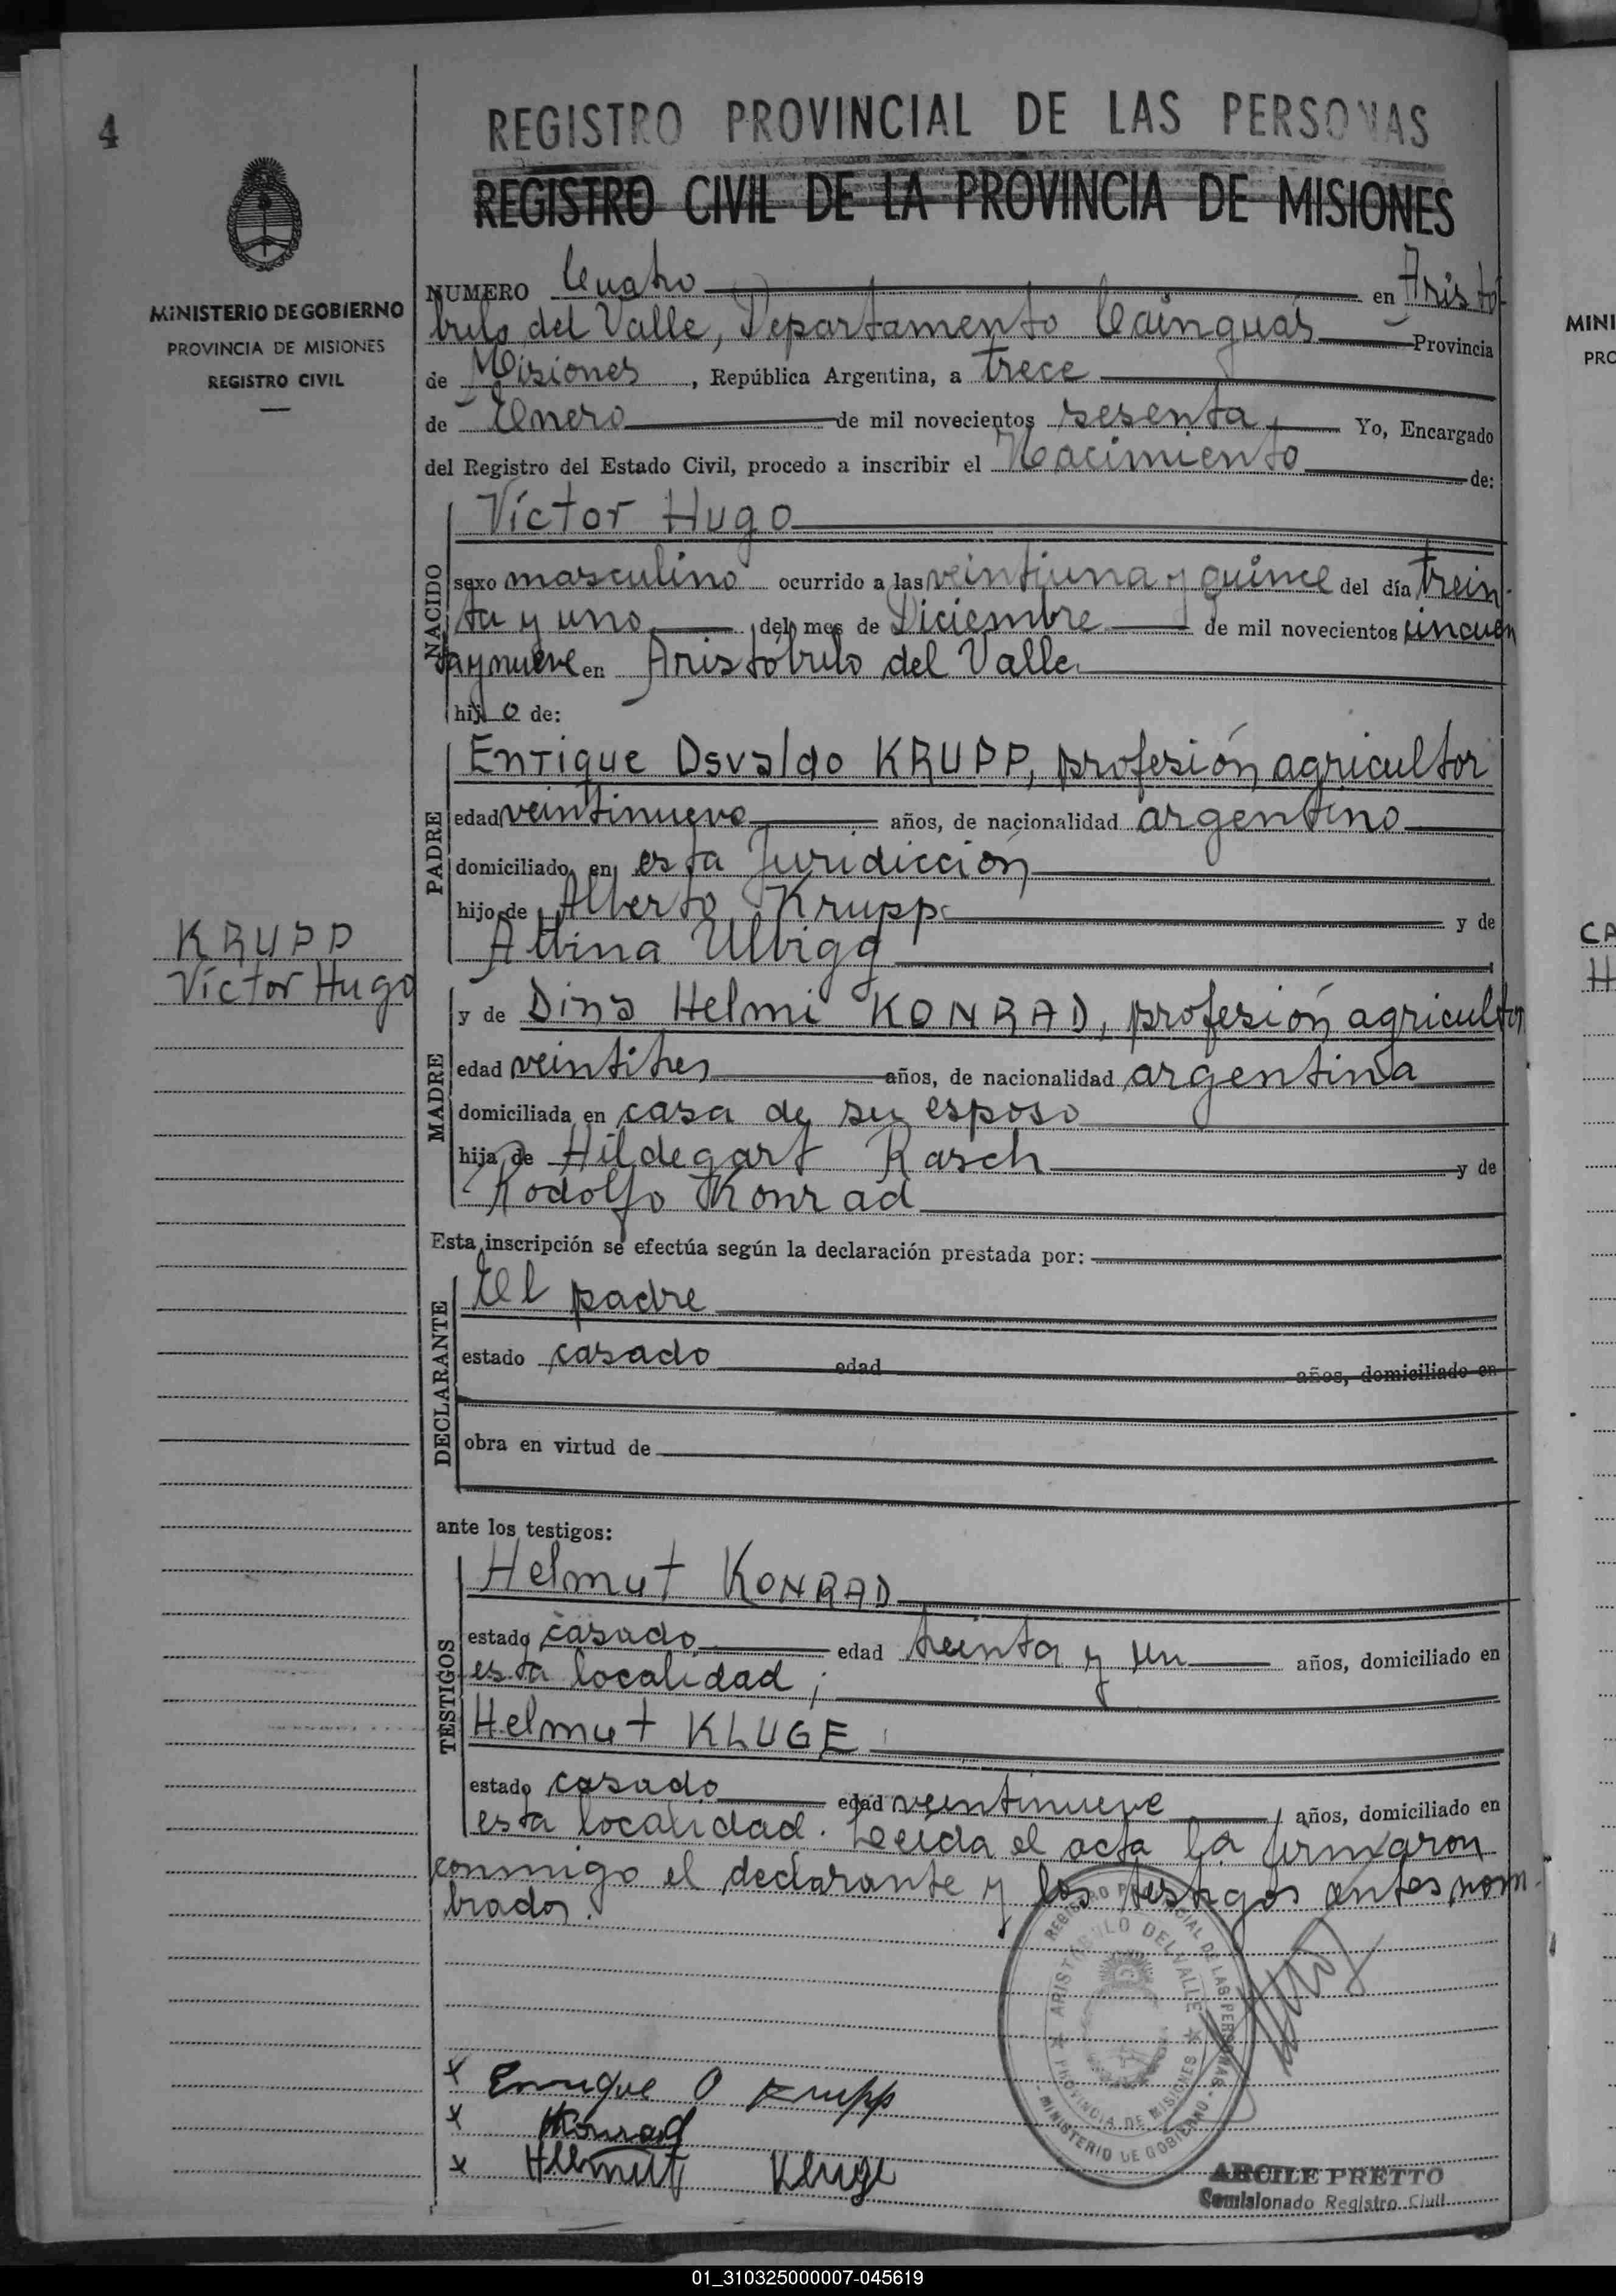 4
REGISTRO PROVINCIAL DE LAS PERSONAS
REGISTRO CIVIL DE LA PROVINCIA DE MISIONES
MINISTERIO DE GOBIERNO
PROVINCIA DE MISIONES
REGISTRO CIVIL
NUMERO Cuatro en Aristó
bulo del Valle, Departamento Cainguás Provincia
de Misiones, República Argentina, a trece
de Enero de mil novecientos sesenta Yo, Encargado
del Registro del Estado Civil, procedo a inscribir el Nacimiento de:
NACIDO
Víctor Hugo
sexo masculino ocurrido a las veintiuna y quince del día trein-
ta y uno del mes de Diciembre de mil novecientos cincuen
ta y nueve en Aristóbulo del Valle
hijo de:
PADRE
Enrique Osvaldo KRUPP, profesión agricultor
edad veintinueve años, de nacionalidad argentino
domiciliado en esta Juridicción
hijo de Alberto Krupp y de
Albina Ulbigg
KRUPP
Víctor Hugo
MADRE
y de Dina Helmi KONRAD, profesión agricultor
edad veintitres años, de nacionalidad argentina
domiciliada en casa de su esposo
hija de Hildegart Rasch y de
Rodolfo Konrad
Esta inscripción se efectúa según la declaración prestada por:
DECLARANTE
El padre
estado casado edad años, domiciliado en
obra en virtud de
ante los testigos:
TESTIGOS
Helmut KONRAD
estado casado edad treinta y un años, domiciliado en
esta localidad;
Helmut KLUGE
estado casado edad veintinueve años, domiciliado en
esta localidad. Leída el acta la firmaron
conmigo el declarante y los testigos antes nom-
brados.
REGISTRO PROVINCIAL DE LAS PERSONAS - MINISTERIO DE GOBIERNO -
ARISTÓBULO DEL VALLE PROVINCIA DE MISIONES
x Enrique O Krupp
x HKonrad
x Helmut Kluge
ARCILE PRETTO
Comisionado Registro Civil
MINI
PRO
CA
H
01_310325000007-045619